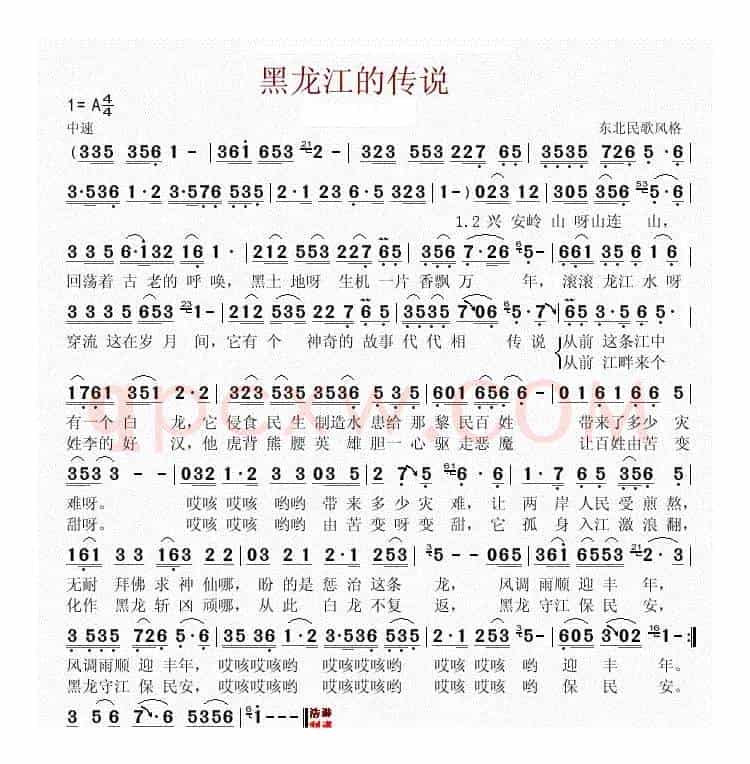 黑龙江的传说
1= A 4/4
中速 东北民歌风格
(335 356 1 - | 361 653 21 2 - | 323 553 227 65 | 3535 726 5 · 6
3·536 1·2 3·576 535 | 2·1 23 6·5 323 | 1 - ) 023 12 | 305 356 5·6
1.2 兴 安岭 山 呀山连 山,
3 3 5 6·132 16 1 · | 212 553 227 65 | 356 7·26 5 - | 661 35 6 1 6
回荡着 古 老的 呼 唤, 黑土 地呀 生机 一片 香飘 万 年, 滚滚 龙江 水 呀
3 3 3 5 653 23 1 - | 212 535 22 7 6 5 | 3535 706 6 5 - | 6 5 3·5 6 5
穿流 这在岁 月 间, 它有 个 神奇的 故事 代代 相 传 说 从前 这条江中
从前 江畔来个
1761 351 2·2 | 323 535 3536 5 3 5 | 601 656 6 - | 0 1 6 1 6 6 5
有一个 白 龙, 它 侵食 民 生 制造水 患给 那 黎 民百 姓 带来 了多少 灾
姓李的 好 汉, 他 虎背 熊 腰 英 雄 胆一 心 驱 走恶 魔 让百姓由苦 变
353 3 - - | 032 1·2 3 3 03 5 | 2 7 5 61 6 - | 1·7 6 5 356 5
难呀。 哎咳 哎咳 哟哟 带 来 多 少 灾 难, 让 两 岸 人民 受 煎熬,
甜呀。 哎咳 哎咳 哟哟 由 苦 变 呀 变 甜, 它 孤 身 入江 激 浪翻,
161 3 3 163 2 2 | 03 2 1 2·1 253 | 3 5 - - 065 | 361 6553 21 2 -
无耐 拜佛 求 神 仙哪, 盼 的是 惩 治 这条 龙, 风调 雨顺 迎 丰 年,
化作 黑龙 斩 凶 顽哪, 从 此 白 龙 不复 返, 黑龙 守江 保 民 安,
3 535 726 5·6 | 35 36 1·2 3·536 535 | 2·1 253 3 5 - | 605 302 16 1 - :‖
风调雨顺 迎 丰年, 哎咳哎咳哟 哎咳哎咳哟 哎咳 哎咳 哟 迎 丰 年。
黑龙守江 保 民安, 哎咳哎咳哟 哎咳哎咳哟 哎咳 哎咳 哟 保 民 安。
3 5 6 7·6 5356 | 6 1 - - - ‖